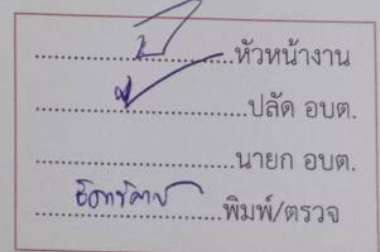 ....................หัวหน้างาน
....................ปลัด อบต.
....................นายก อบต.
....................พิมพ์/ตรวจ